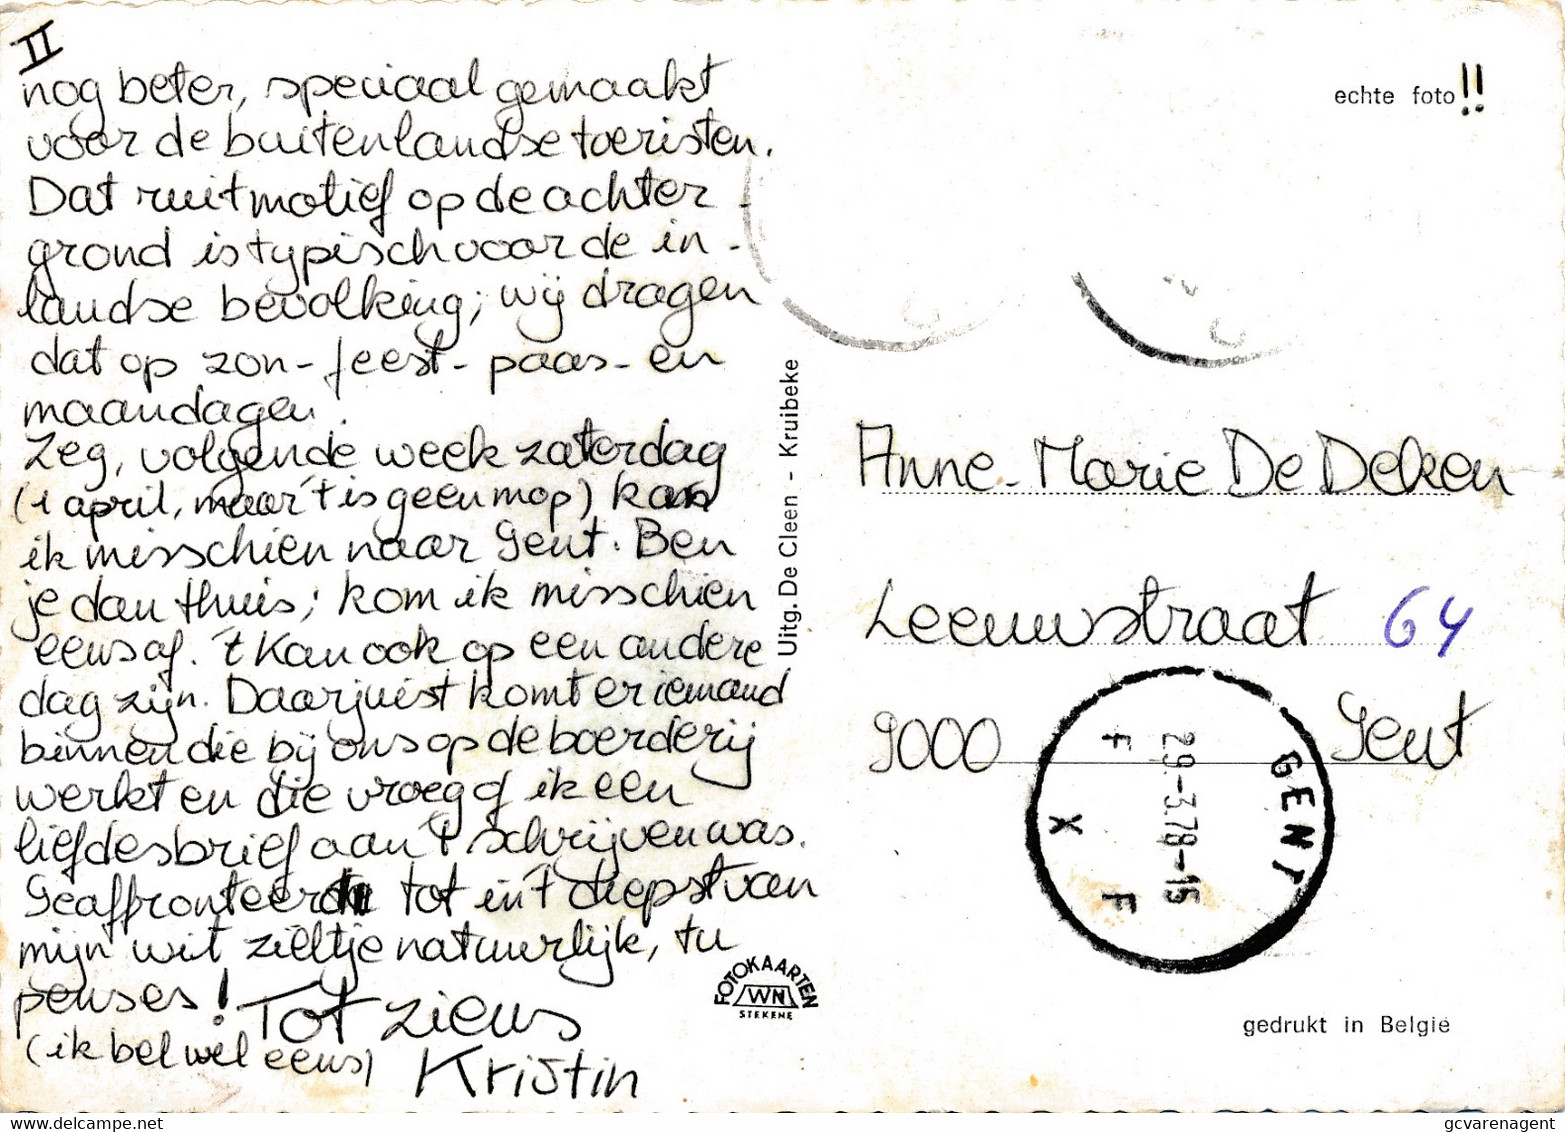 II
nog beter, speciaal gemaakt
voor de buitenlandse toeristen.
Dat ruitmotief op de achter-
grond is typisch voor de in-
landse bevolking; wij dragen
dat op zon- feest- paas- en
maandagen.
Zeg, volgende week zaterdag
(1 april, maar 't is geen mop) kan
ik misschien naar Gent. Ben
je dan thuis; kom ik misschien
eens af. 't Kan ook op een andere
dag zijn. Daarjuist komt er iemand
binnen die bij ons op de boerderij
werkt en die vroeg of ik een
liefdesbrief aan 't schrijven was.
Geaffronteerd tot in 't diepst van
mijn wit zieltje natuurlijk, tu
penses! Tot ziens
(ik bel wel eens) Kristin
Uitg. De Cleen - Kruibeke
FOTOKAARTEN
WN
STEKENE
echte foto!!
Anne-Marie De Deken
Leeuwstraat 64
9000 Gent
GENT
29-3.78-15
F F
X
gedrukt in België
delcampe.net
gcvarenagent